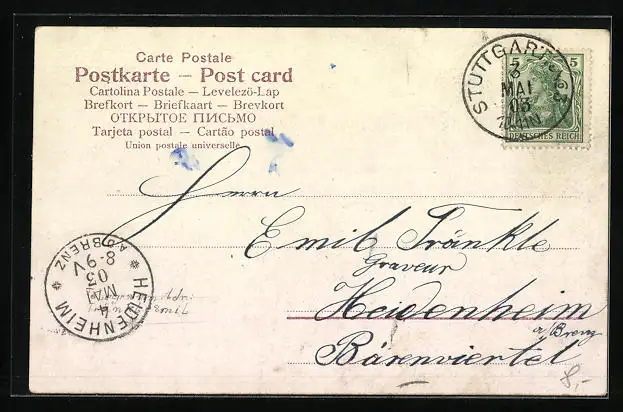 Carte Postale
Postkarte — Post card
Cartolina Postale — Levelező-Lap
Brefkort — Briefkaart — Brevkort
ОТКРЫТОЕ ПИСЬМО
Tarjeta postal — Cartão postal
Union postale universelle
STUTTGART
3
MAI
03
5 5
DEUTSCHES REICH
Herrn
Emil Fränkle
Graveur
Heidenheim
a/Brenz
Bärenviertel
HEIDENHEIM
4
MAI
03
8-9 V
A/BRENZ
8,-